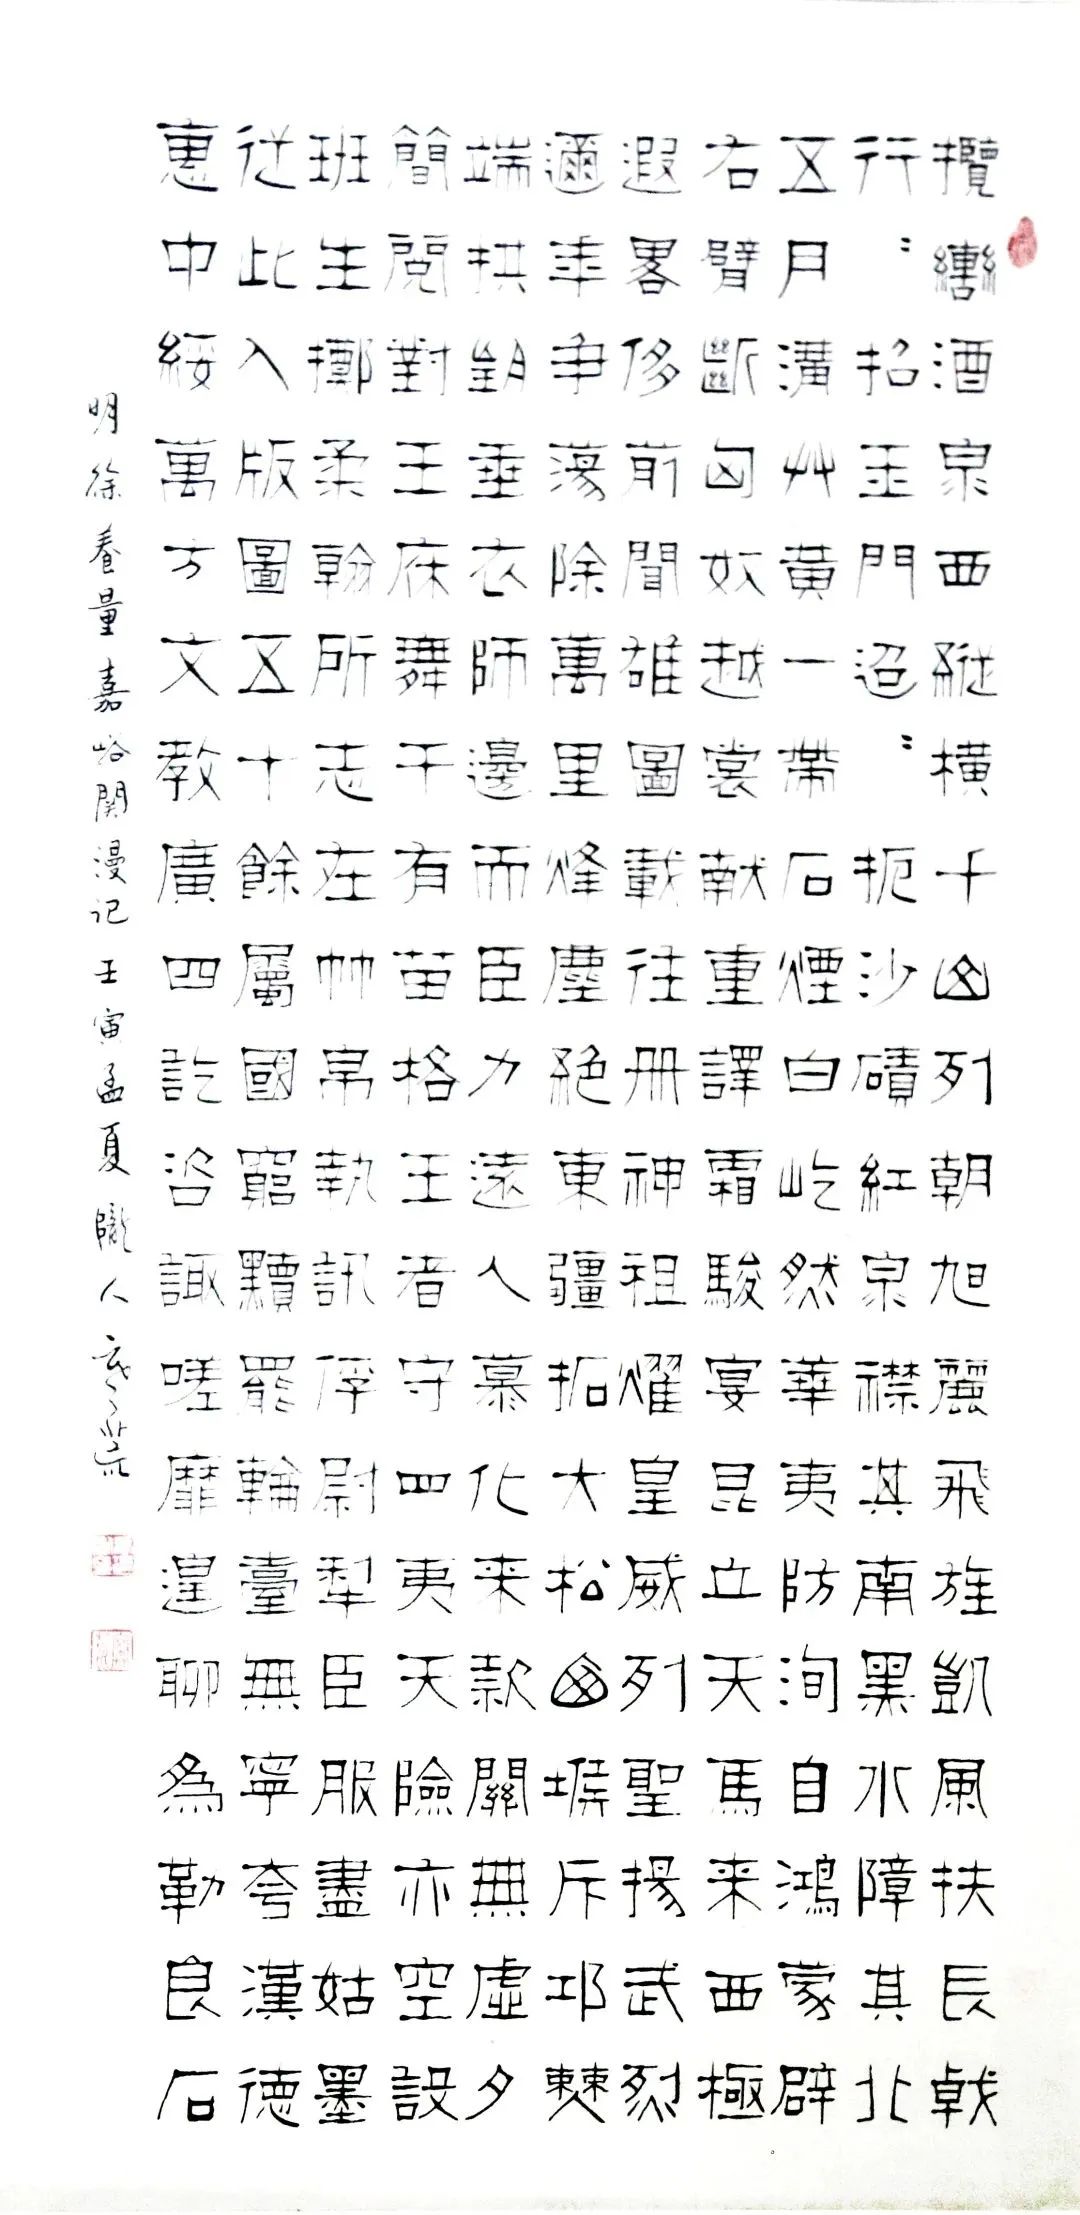 攬轡酒泉西縱橫千山列朝旭麗飛旌凱風扶長戟
行〻招玉門迢〻扼沙磧紅泉襟其南黑水障其北
五月溝艸黃一帶石煙白屹然華夷防洵自鴻蒙辟
右臂斷匈奴越裳獻重譯霜駿宴昆丘天馬来西極
遐畧侈前聞雄圖載往冊神祖燿皇威列聖揚武烈
邇年爭蕩除萬里烽塵絕東疆拓大松西堠斥邛僰
端拱朝垂衣師邊而臣力遠人慕化来款關無虛夕
簡閱對王庥舞干有苗格王者守四夷天險亦空設
班生擲柔翰所志在竹帛執訊俘尉犁臣服盡姑墨
從此入版圖五十餘屬國窮黷罷輪臺無寧夸漢德
惠中綏萬方文教廣四訖咨諏嗟靡遑聊為勒良石
明徐養量嘉峪關漫记壬寅孟夏隴人